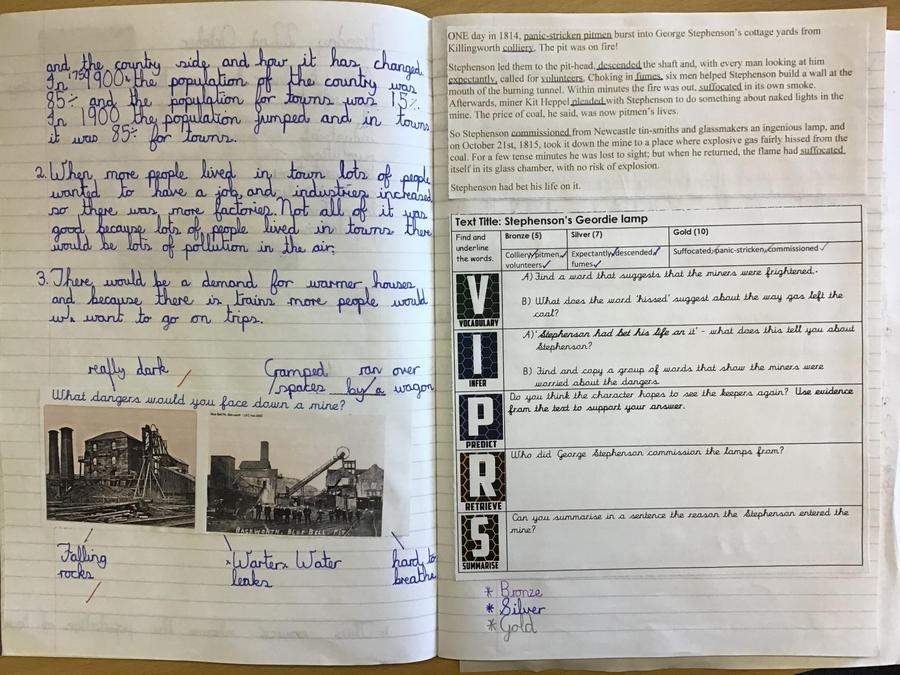 and the country side and how it has changed.
In 1759 1900 the population of the country was
85% and the population for towns was 15%.
In 1900 the population jumped and in towns
it was 85% for towns.
2. When more people lived in town lots of people
wanted to have a job and industries increased
so there was more factories. Not all of it was
good because lots of people lived in towns there
would be lots of pollution in the air.
3. There would be a demand for warmer houses
and because there is trains more people would
want to go on trips.
really dark
Cramped spaces
ran over by a wagon
What dangers would you face down a mine?
BACKWORTH, BLUE BELL PIT
Falling
rocks
Warter Water
leaks
hard to
breathe
ONE day in 1814, panic-stricken pitmen burst into George Stephenson's cottage yards from
Killingworth colliery. The pit was on fire!
Stephenson led them to the pit-head, descended the shaft and, with every man looking at him
expectantly, called for volunteers. Choking in fumes, six men helped Stephenson build a wall at the
mouth of the burning tunnel. Within minutes the fire was out, suffocated in its own smoke.
Afterwards, miner Kit Heppel pleaded with Stephenson to do something about naked lights in the
mine. The price of coal, he said, was now pitmen's lives.
So Stephenson commissioned from Newcastle tin-smiths and glassmakers an ingenious lamp, and
on October 21st, 1815, took it down the mine to a place where explosive gas fairly hissed from the
coal. For a few tense minutes he was lost to sight; but when he returned, the flame had suffocated
itself in its glass chamber, with no risk of explosion.
Stephenson had bet his life on it.
Text Title: Stephenson's Geordie lamp
Find and
underline
the words.
Bronze (5)
Silver (7)
Gold (10)
Colliery, pitmen,
volunteers
Expectantly, descended,
fumes
Suffocated, panic-stricken, commissioned
V
VOCABULARY
A) Find a word that suggests that the miners were frightened.
B) What does the word 'hissed' suggest about the way gas left the
coal?
I
INFER
A) 'Stephenson had bet his life on it' - what does this tell you about
Stephenson?
B) Find and copy a group of words that show the miners were
worried about the dangers
P
PREDICT
Do you think the character hopes to see the keepers again? Use evidence
from the text to support your answer.
R
RETRIEVE
Who did George Stephenson commission the lamps from?
S
SUMMARISE
Can you summarise in a sentence the reason the Stephenson entered the
mine?
* Bronze
* Silver
* Gold